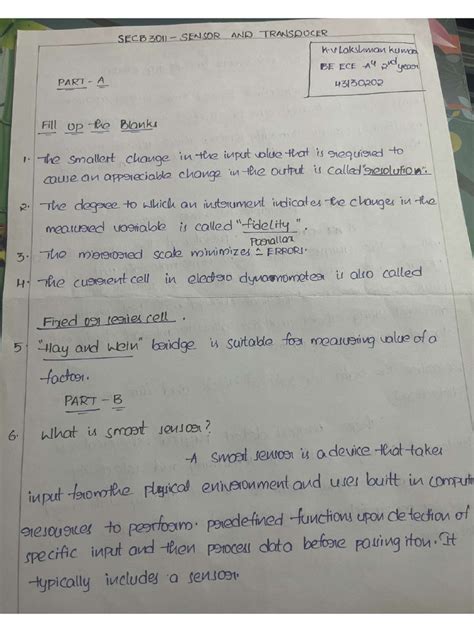 SECB3011 - SENSOR AND TRANSDUCER
K.V Lakshman Kumar
BE ECE A4 2nd year
43130202
PART - A
Fill up the Blanks
1. The smallest change in the input value that is required to
cause an appreciable change in the output is called "resolution".
2. The degree to which an instrument indicates the changes in the
measured variable is called "fidelity".
Parallax
3. The mirrored scale minimizes ERROR.
4. The current cell in electro dynamometer is also called
Fixed or series cell.
5. "Hay and Wein" bridge is suitable for measuring value of a
factor.
PART - B
6. What is smart sensor?
A smart sensor is a device that takes
input from the physical environment and uses built in
resources to perform. predefined functions upon detection of
specific input and then process data before passing it on. It
typically includes a sensor.